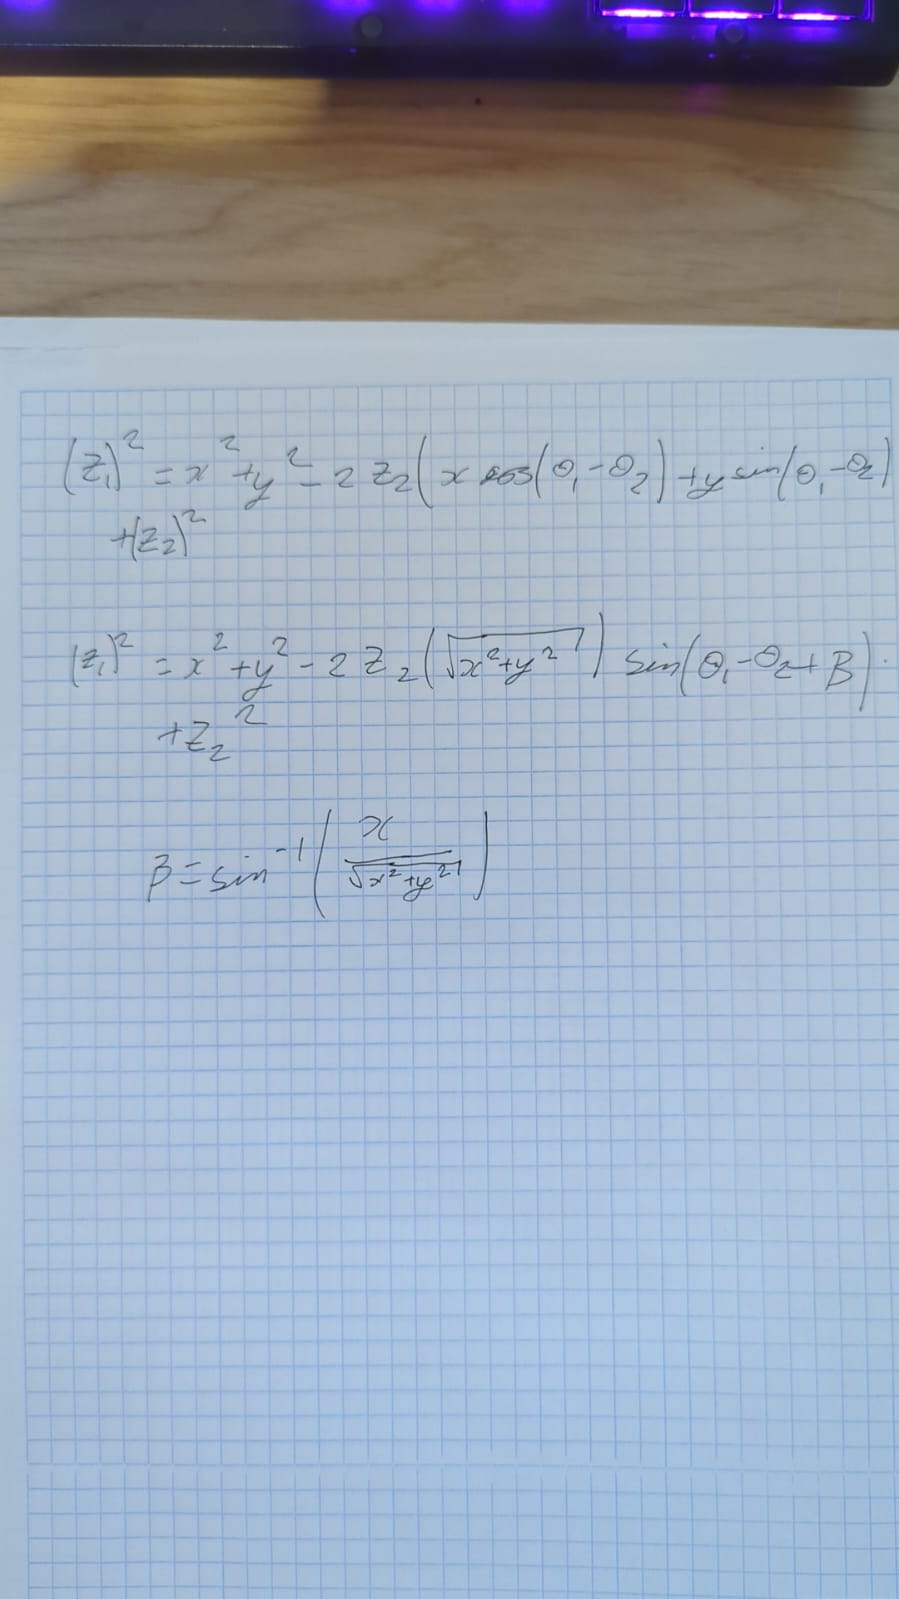 (z₁)² = x² + y² - 2 z₂ ( x cos(θ₁ - θ₂) + y sin(θ₁ - θ₂)
+(z₂)²
(z₁)² = x² + y² - 2 z₂ (√x² + y²) sin(θ₁ - θ₂ + β).
+ z₂²
β = sin⁻¹ ( x / √x² + y² )